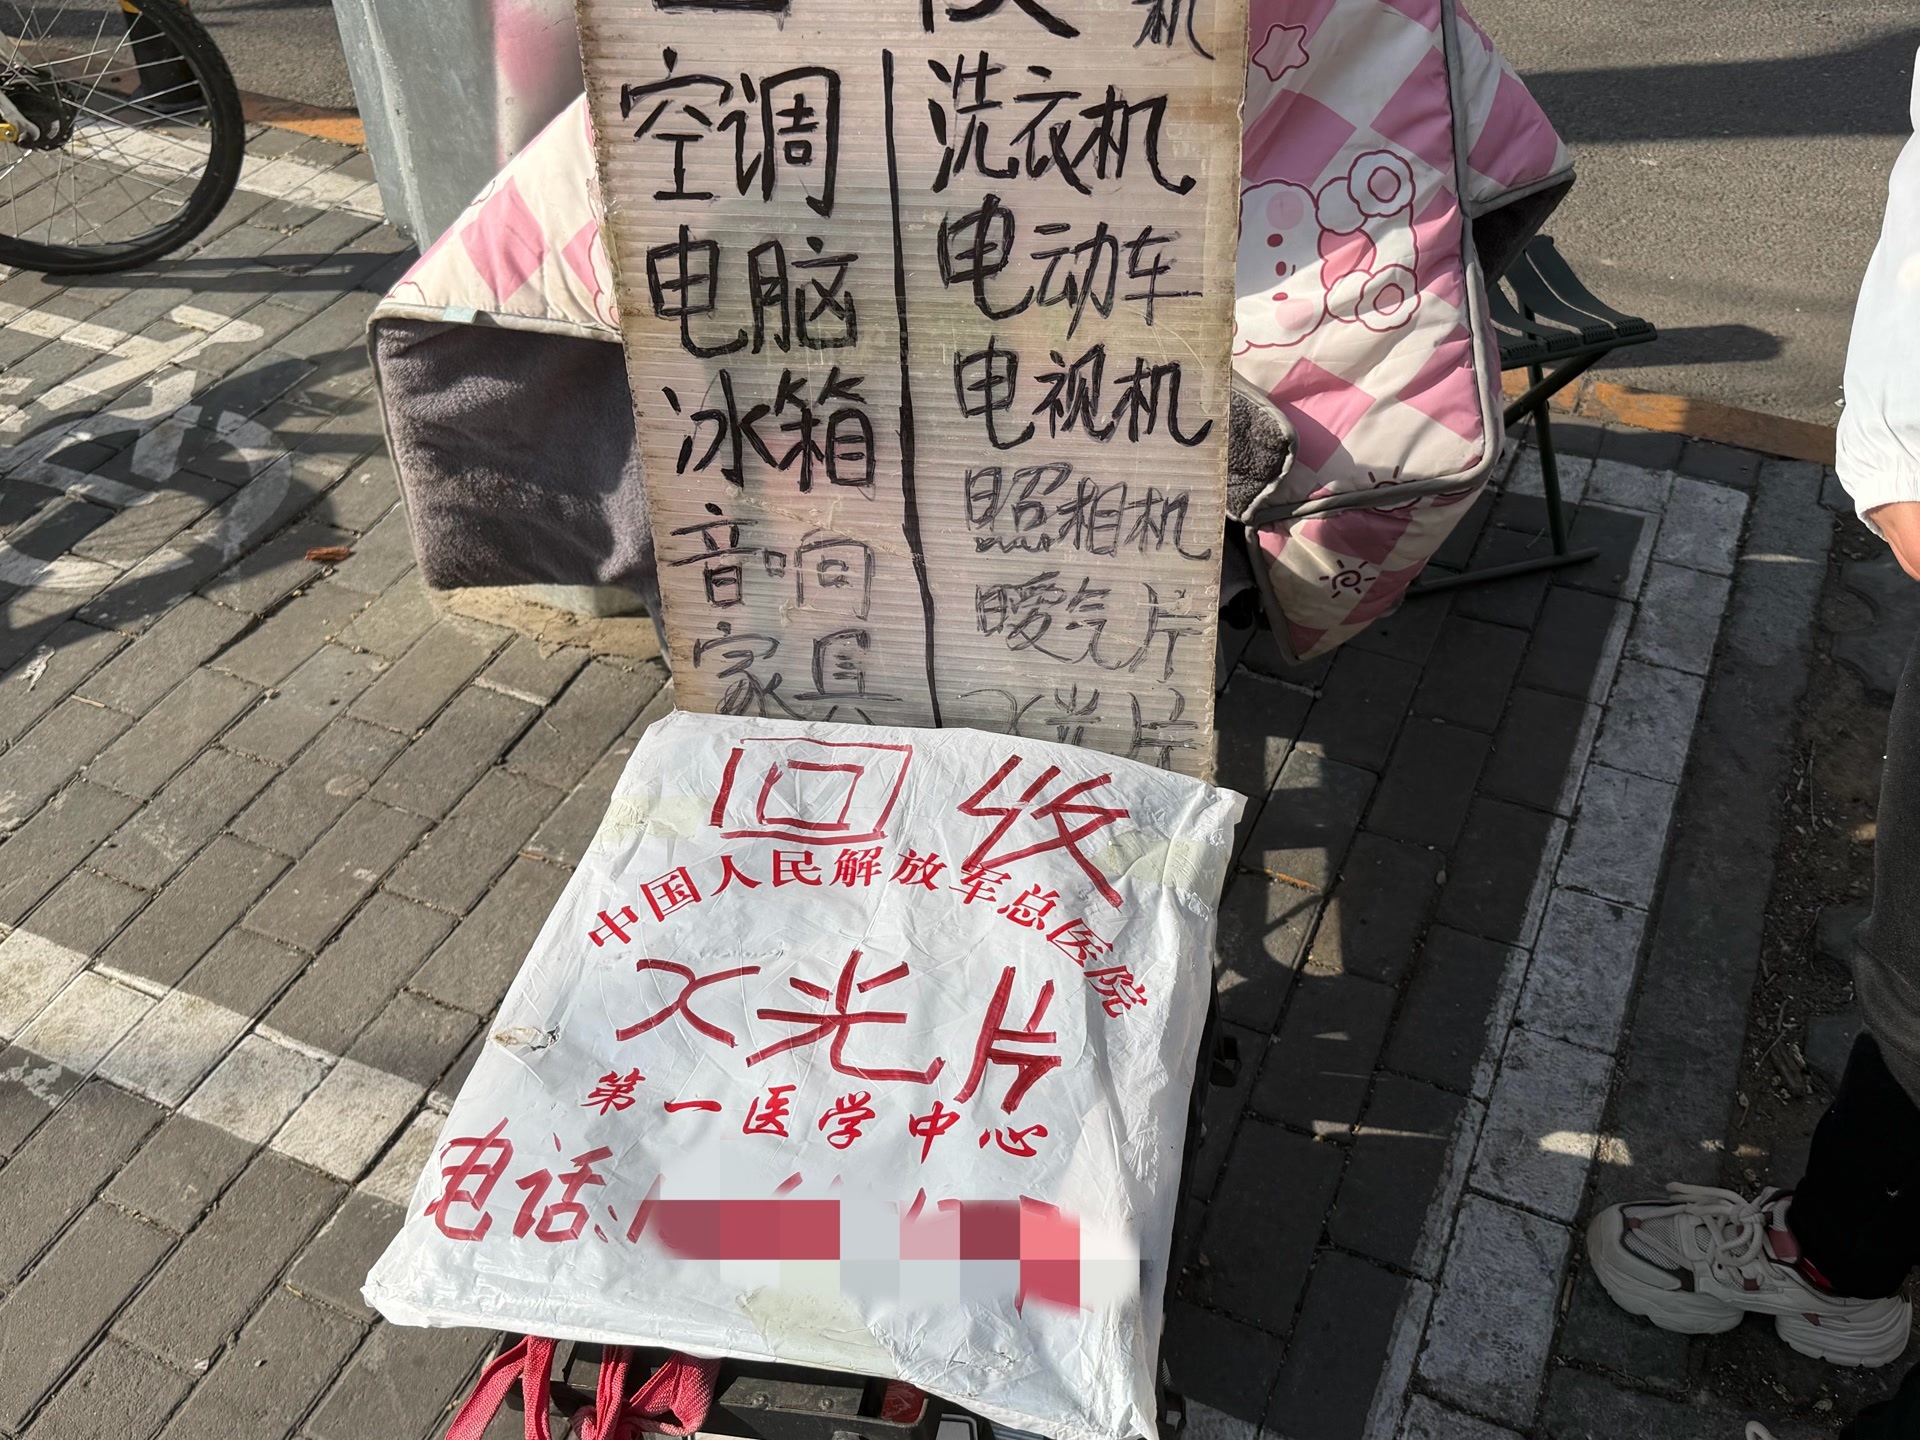 机
空调
电脑
冰箱
音响
家具
洗衣机
电动车
电视机
照相机
暖气片
X光片
回收
中国人民解放军总医院
X光片
第一医学中心
电话:1